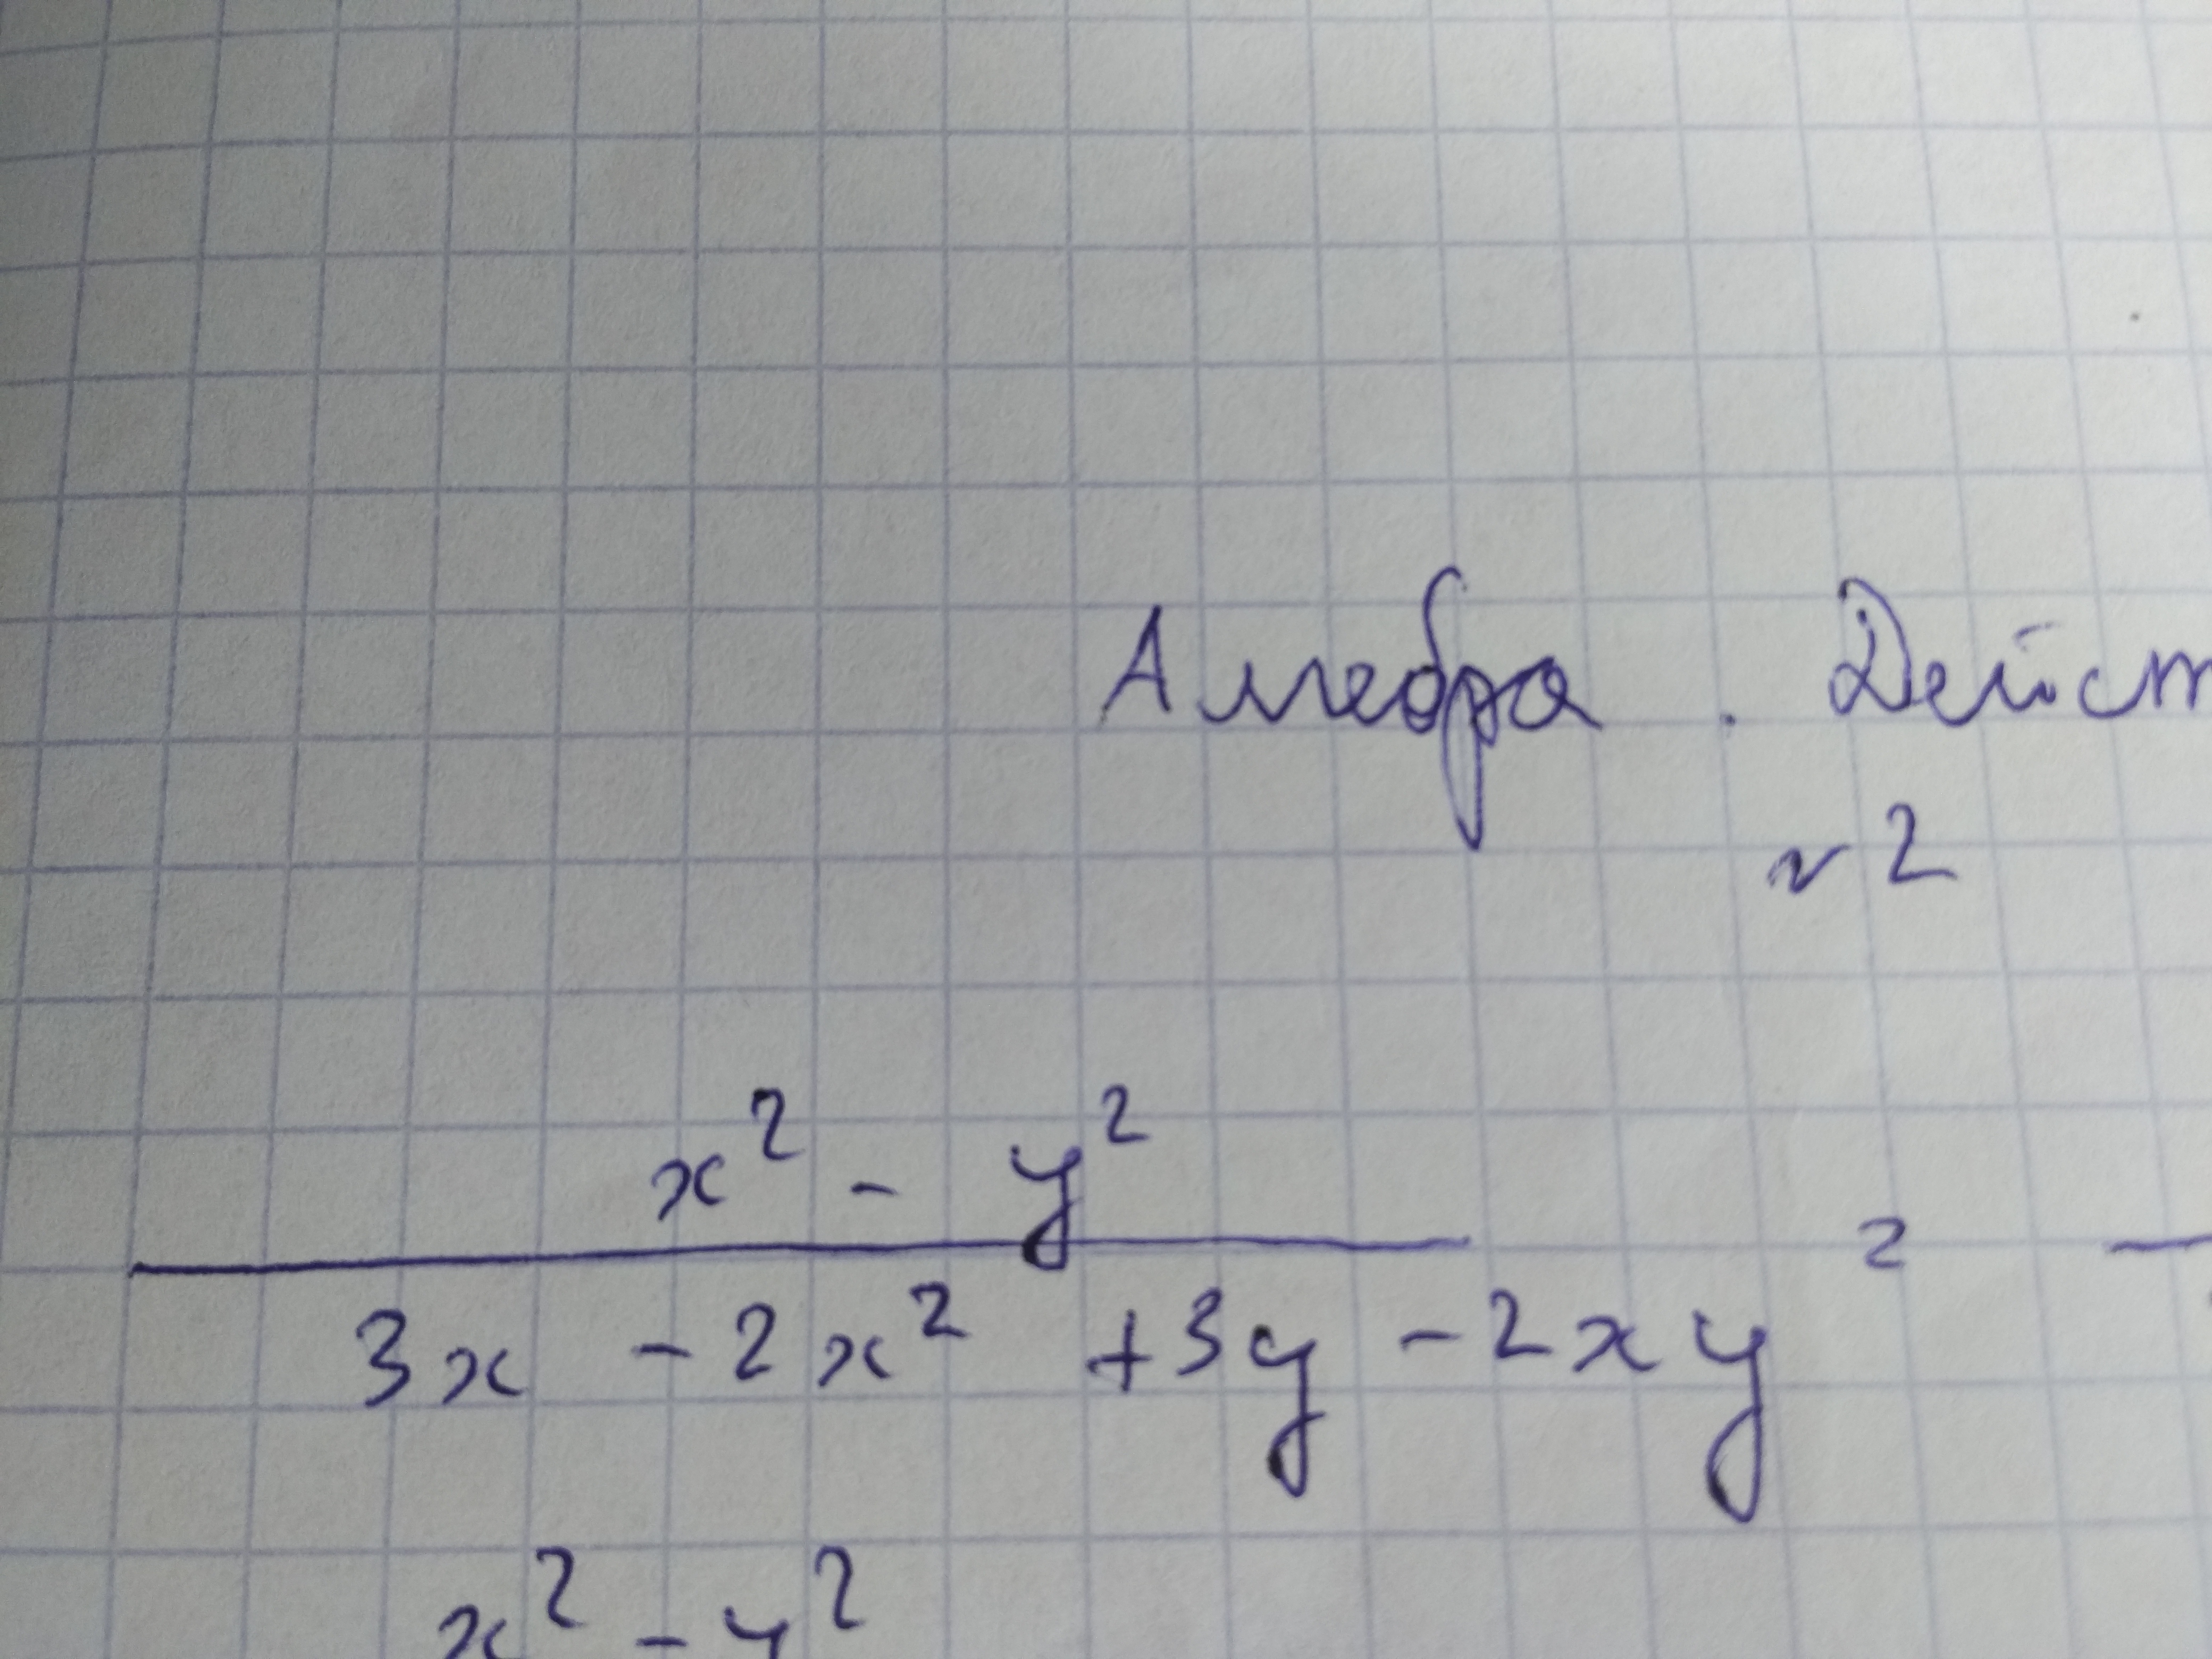 Алгебра . Дейст
№2
x² - y²
3x - 2x² + 3y - 2xy =
x² - y²